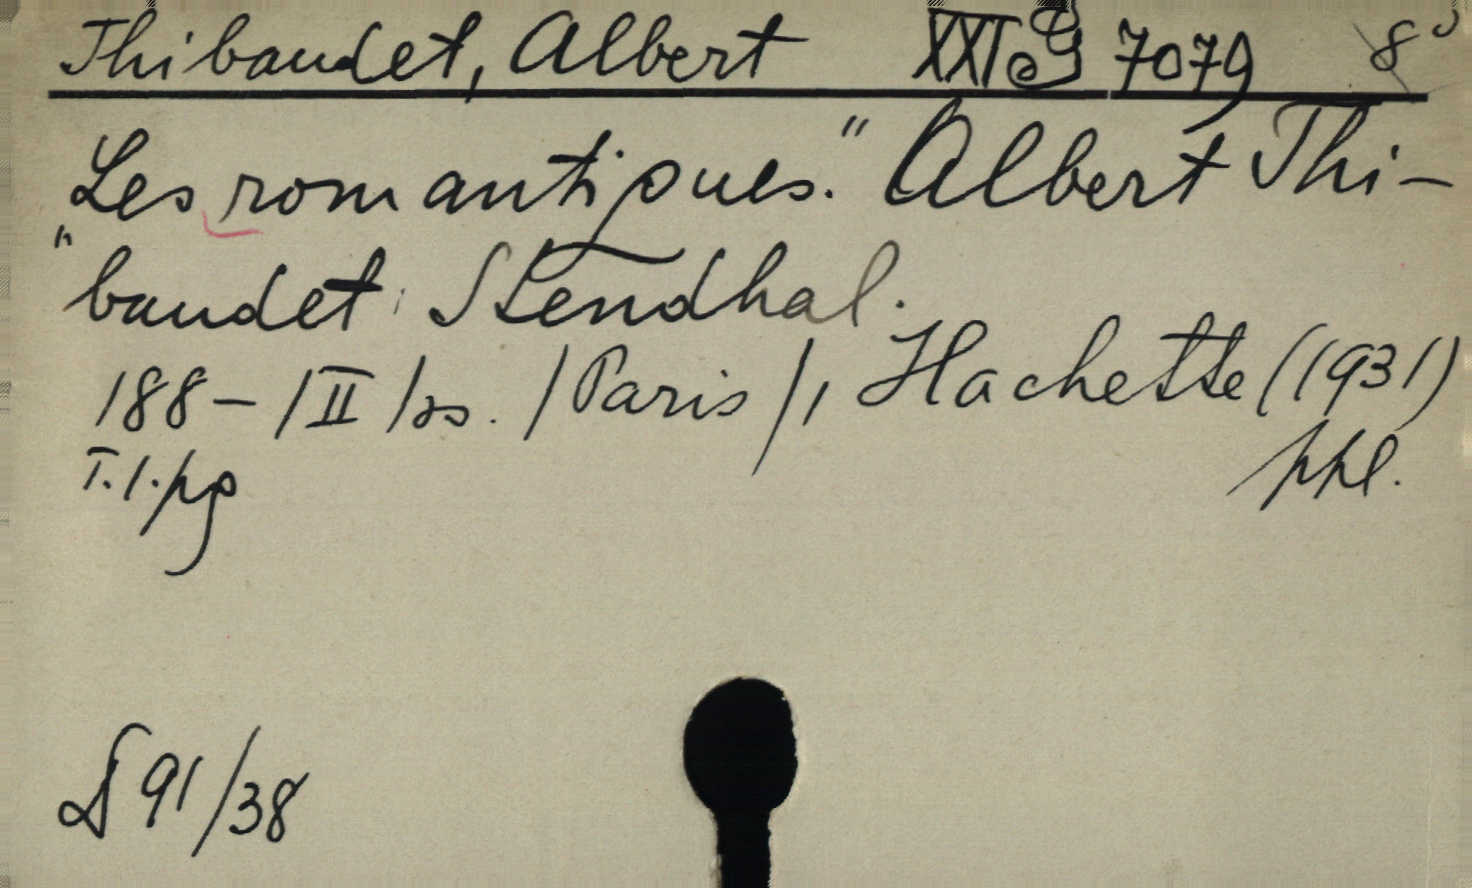 Thibaudet, Albert XXI G 7079 8°
"Les romantiques." Albert Thi-
baudet: Stendhal.
188-/II/ss. /Paris/, Hachette (1931)
T.1.pg ppl.
S 91/38